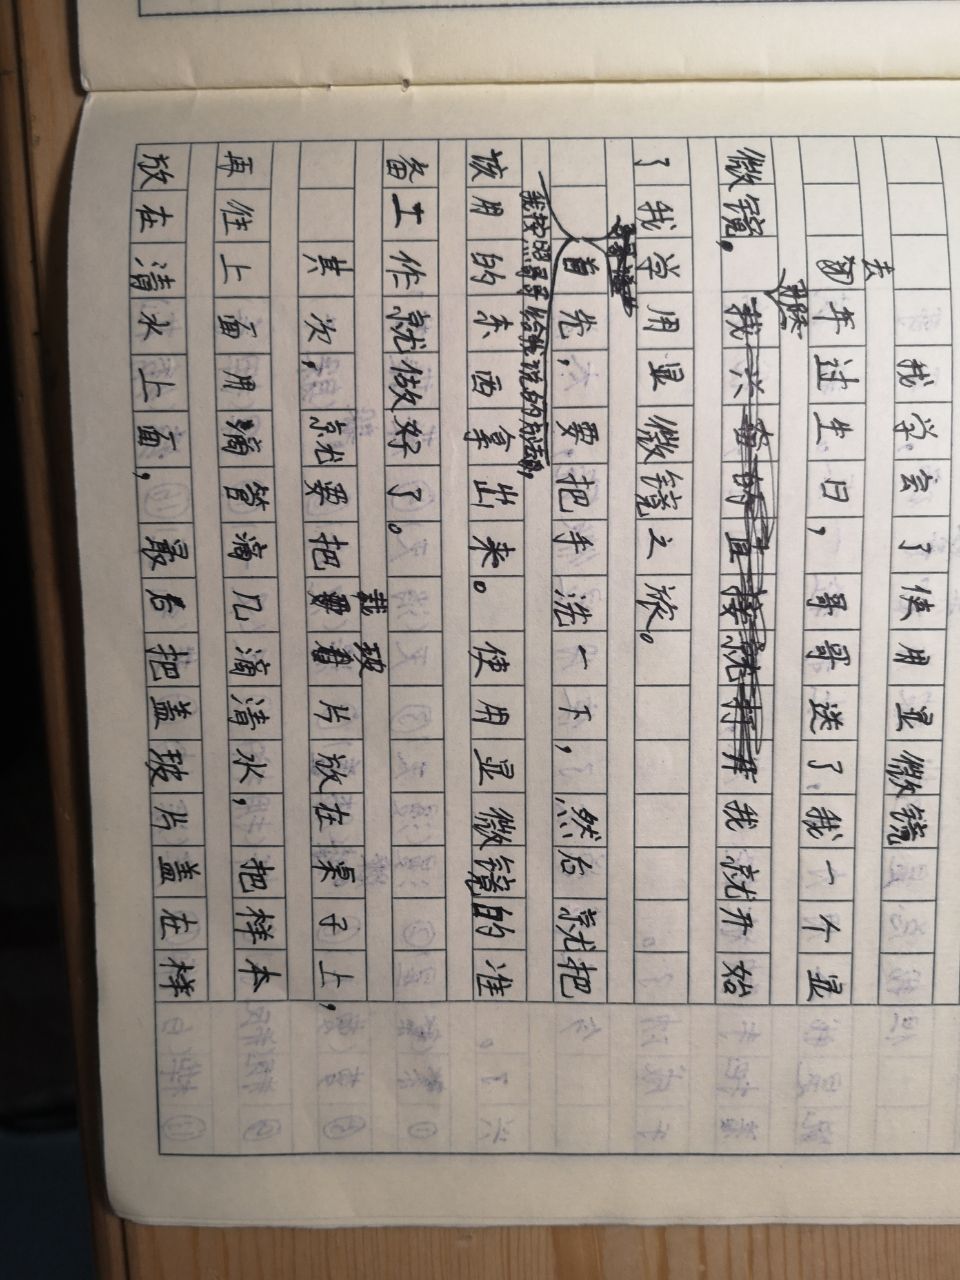 我学会了使用显微镜
去
年过生日，哥哥送了我一个显
微镜。我兴奋的直接就打开我就开始
了我学用显微镜之旅。
首先，要把手洗一下，然后就把
我按照哥哥给我说的方法，
该用的东西拿出来。使用显微镜的准
备工作就做好了。
载玻
其次，就要把片放在桌子上，
再往上面用滴管滴几滴清水，把样本
放在清水上面，最后把盖玻片盖在样